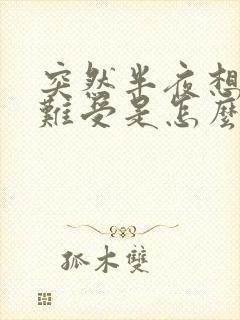 突然半夜想
難受是怎麼
孤木雙